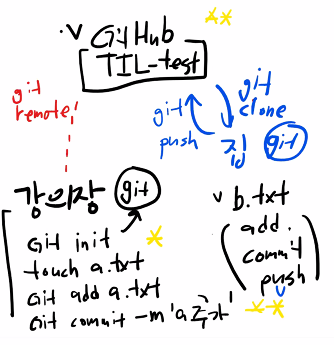 GitHub
TIL-test
git
remote
git
clone
git
push
집
git
강의장
git
git init
touch a.txt
git add a.txt
git commit -m 'a추가'
b.txt
add .
commit
push